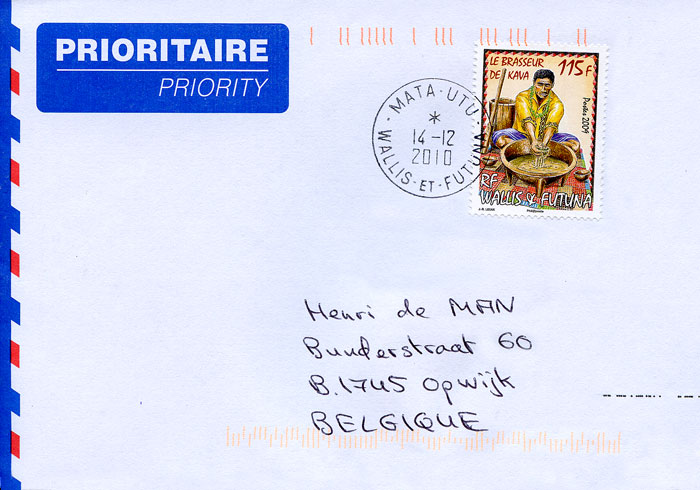 PRIORITAIRE
PRIORITY
MATA-UTU
*
14-12
2010
WALLIS-ET-FUTUNA
LE BRASSEUR
DE KAVA
115F
Postes 2009
RF
WALLIS & FUTUNA
Henri de MAN
Bunderstraat 60
B.1745 Opwijk
BELGIQUE